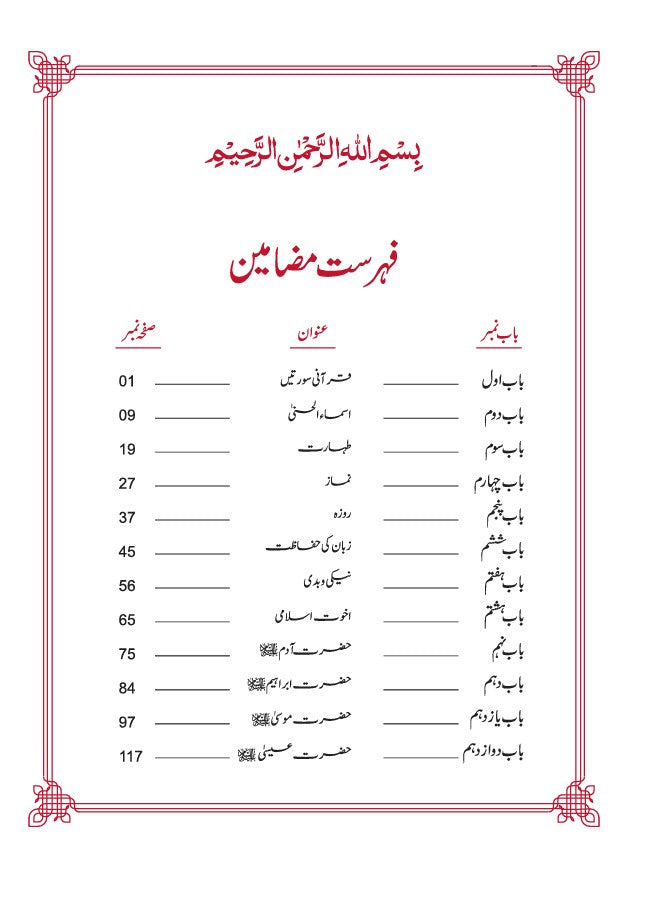 بِسْمِ اللهِ الرَّحْمٰنِ الرَّحِیْمِ
فہرست مضامین
باب نمبر عنوان صفحہ نمبر
باب اول قرآنی سورتیں 01
باب دوم اسماء الحسنیٰ 09
باب سوم طہارت 19
باب چہارم نماز 27
باب پنجم روزہ 37
باب ششم زبان کی حفاظت 45
باب ہفتم نیکی و بدی 56
باب ہشتم اخوت اسلامی 65
باب نہم حضرت آدم 75
باب دہم حضرت ابراہیم 84
باب یازدہم حضرت موسیٰ 97
باب دوازدہم حضرت عیسیٰ 117